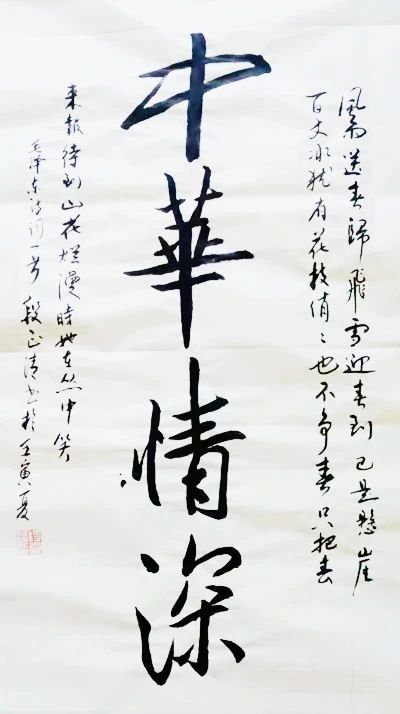 風雨送春歸飛雪迎春到已是懸崖
百丈冰猶有花枝俏〻也不爭春只把春
中華情深
来報待到山花爛漫時她在丛中笑
毛泽东诗词一首 段正清书於壬寅夏